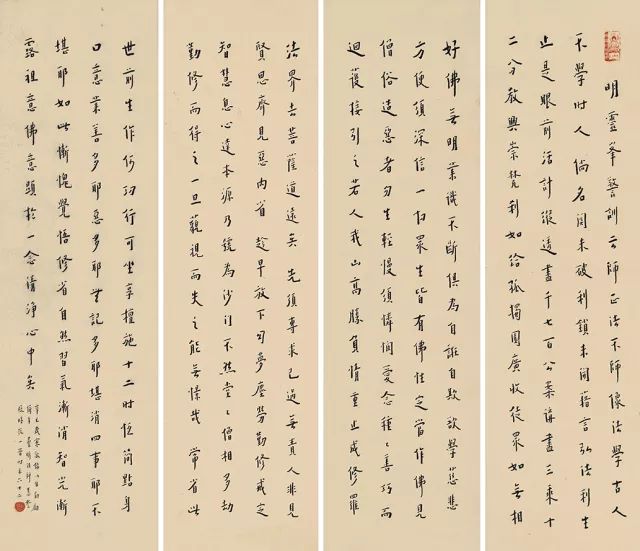 明靈峯警訓云師正法不師像法學古人
不學時人倘名關未破利鎖未開藉言弘法利生
止是眼前活計縱透盡千七百公案講盡三乘十
二分教興崇梵刹如給孤獨園廣收徒眾如無相
好佛無明業識不斷俱為自誑自欺欲學慈悲
方便須深信一切眾生皆有佛性定當作佛見
僧俗造惡者勿生輕慢須憐憫愛念種種善巧而
迴護接引之若人我山高勝負情重止成修羅
法界去菩薩道遠矣先須專求己過毋責人非見
賢思齊見惡內省趁早放下勾夢塵勞勤修戒定
智慧息心達本源乃號為沙门不然堂堂僧相多劫
勤修而得之一旦藐視而失之能無懍哉常省此
世前生作何功行可坐享檀施十二时位簡點身
口意業善多耶惡多耶無記多耶堪消四事耶不
堪耶如此慚愧覺悟修省自然習氣漸消智光漸
露祖意佛意顯於一念清淨心中矣